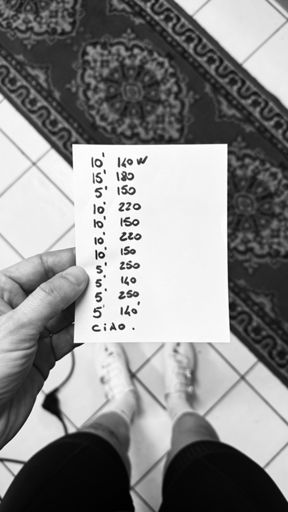 10' 140W
15' 180
5' 150
10. 220
10. 150
10. 220
10. 150
5'. 250
5. 140
5. 250
5' 140'
CIAO.